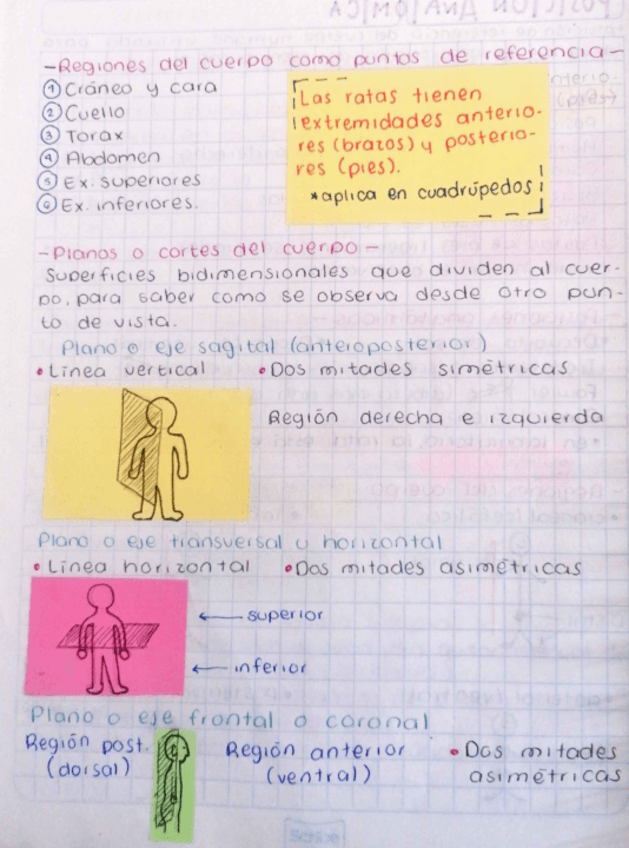 -Regiones del cuerpo como puntos de referencia-
① Cráneo y cara
② Cuello
③ Torax
④ Abdomen
⑤ Ex. superiores
⑥ Ex. inferiores.
Las ratas tienen
extremidades anterio-
res (brazos) y posterio-
res (pies).
*aplica en cuadrúpedos
-Planos o cortes del cuerpo-
Superficies bidimensionales que dividen al cuer-
po, para saber como se observa desde otro pun-
to de vista.
Plano o eje sagital (anteroposterior)
• Línea vertical • Dos mitades simétricas
Región derecha e izquierda
Plano o eje transversal u horizontal
• Línea horizontal • Dos mitades asimétricas
← superior
← inferior
Plano o eje frontal o coronal
Región post. Región anterior • Dos mitades
(dorsal) (ventral) asimétricas
Scribe